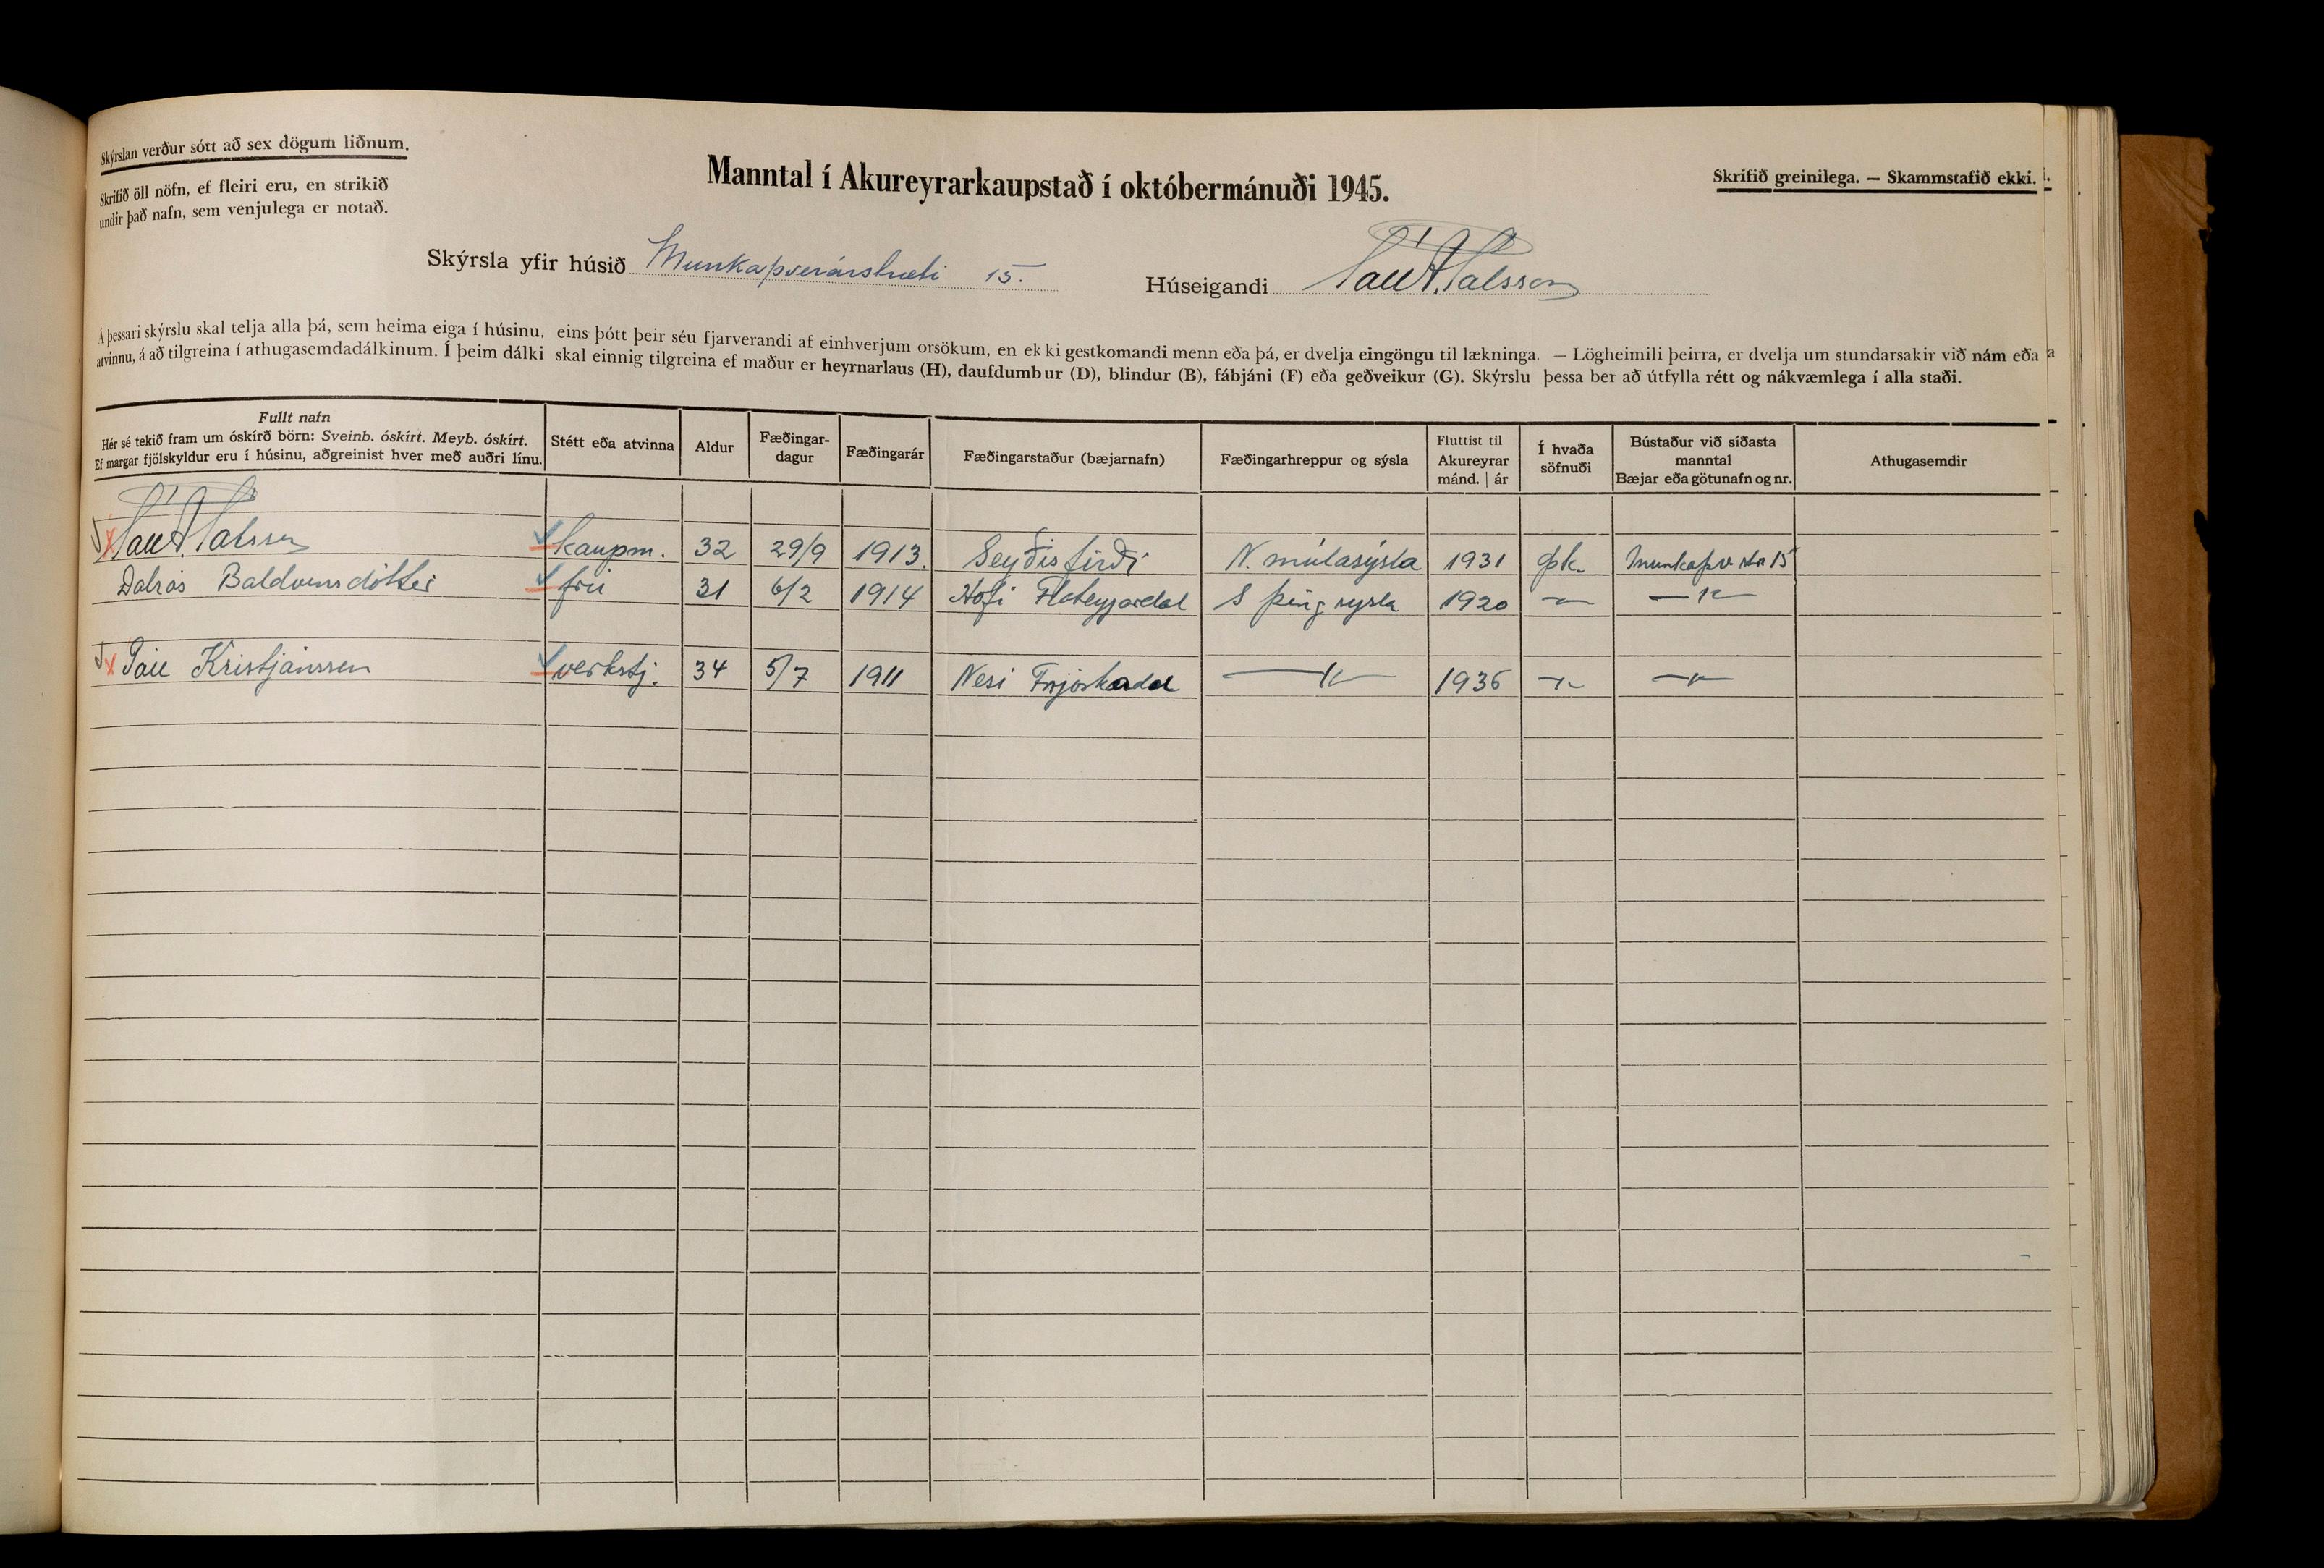 Skýrslan verður sótt að sex dögum liðnum.
Skrifið öll nöfn, ef fleiri eru, en strikið
undir það nafn, sem venjulega er notað.
Manntal í Akureyrarkaupstað í októbermánuði 1945.
Skrifið greinilega. — Skammstafið ekki.
Skýrsla yfir húsið Munkaþverárstræti 15.
Húseigandi Páll A. Pálsson
Á þessari skýrslu skal telja alla þá, sem heima eiga í húsinu, eins þótt þeir séu fjarverandi af einhverjum orsökum, en ekki gestkomandi menn eða þá, er dvelja eingöngu til lækninga. — Lögheimili þeirra, er dvelja um stundarsakir við nám eða
atvinnu, á að tilgreina í athugasemdadálkinum. Í þeim dálki skal einnig tilgreina ef maður er heyrnarlaus (H), daufdumbur (D), blindur (B), fábjáni (F) eða geðveikur (G). Skýrslu þessa ber að útfylla rétt og nákvæmlega í alla staði.
Fullt nafn
Hér sé tekið fram um óskírð börn: Sveinb. óskírt. Meyb. óskírt.
Ef margar fjölskyldur eru í húsinu, aðgreinist hver með auðri línu.
Stétt eða atvinna
Aldur
Fæðingar-
dagur
Fæðingarár
Fæðingarstaður (bæjarnafn)
Fæðingarhreppur og sýsla
Fluttist til
Akureyrar
mánd. | ár
Í hvaða
söfnuði
Bústaður við síðasta
manntal
Bæjar eða götunafn og nr.
Athugasemdir
Páll A. Pálsson kaupm. 32 29/9 1913. Seyðisfirði N. múlasýsla 1931 þk. Munkaþv.str 15
Dalrós Baldvinsdóttir frú 31 6/2 1914 Hofi Flateyjardal S þingsysla 1920 —"— —"—
Páll Kristjánsson verkstj. 34 5/7 1911 Nesi Fnjóskadal —"— 1936 —"— —"—